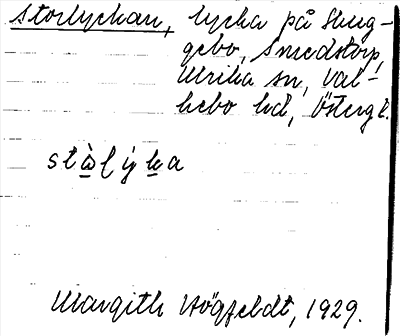 Storlyckan, lycka på Skug-
gebo, Smedstorp,
Ulrika sn, Val-
kebo hd, Östergl.
Margith Högfeldt, 1929.